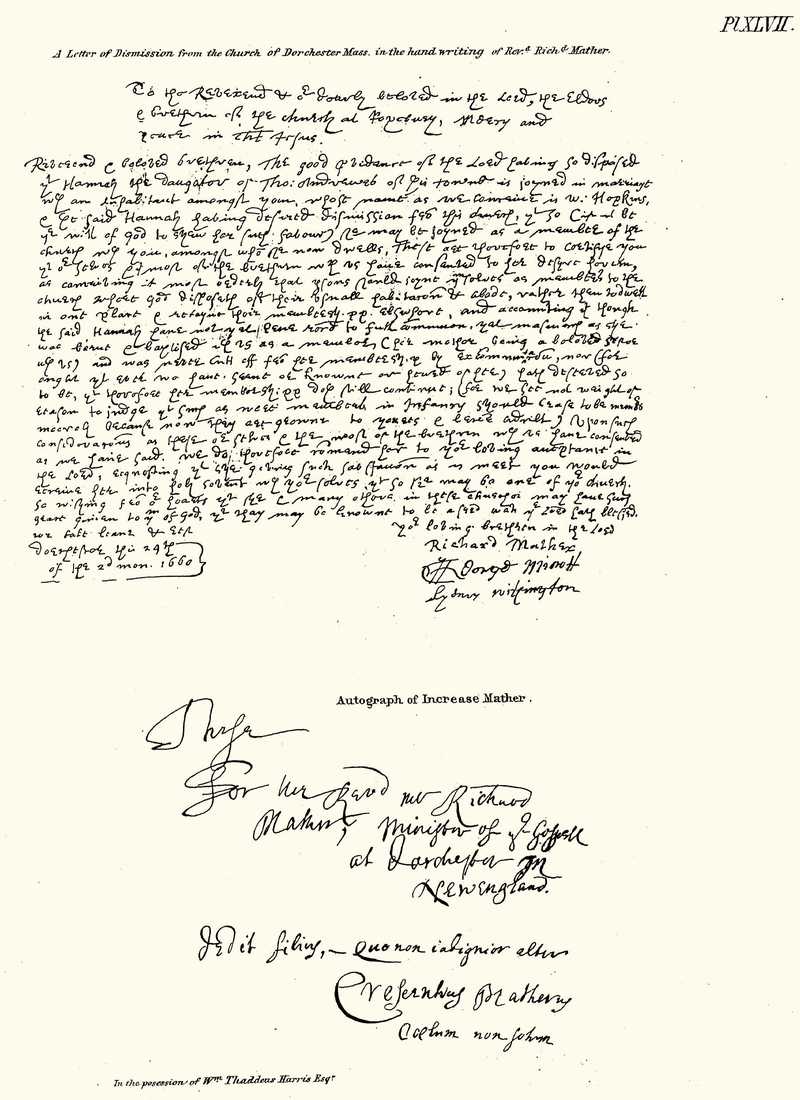 Pl XLVII.
A Letter of Dismission from the Church of Dorchester Mass. in the hand writing of Rev.d Rich.d Mather.
To the Reverend & or dearly beloved in the Lord, the Elders
& brethren of the church at Roxbury, Mercy and
peace in Jesus.
Reverend & beloved brethren, The good providence of the Lord having so disposed
yt Hannah the daughter of Tho: Andrewes of this towne is joyned in marriage
wth an inhabitant amongst you, whose name as we conceive is W: Hopkins,
& the said Hannah having desired dismission fro this church, yt so (if it be
the will of god to shew her such favour) she may be joyned as a member of the
church wth you, amongst who she now dwells, These are therefore to certifye you
yt or selves & most of the brethren wth us have consented to her desyre herein,
as conceiving it most orderly that psons should joyne ymselves as members to the
church where god disposeth of their usuall habitation & abode, rather then to dwell
in one place & retayne their membersh:pp: elsewhere, and accounting yt though
the said Hannah have not yet bene recd to full communion, yet inasmuch as she
was borne & baptised wth us as a member, (her mother being a beloved sister
wth us) and was never cutt off fro her membersh:p by excommunicatio, nor (for
ought yt ever we have heard or knowne or heard of her) hath deserved so
to be, yt therefore her membersh:pp doth still continue; (for we see not weight of
reason to judge yt such as were members in Infancy should cease to be members
meerely because now they are growne to yeares & bene adult) Upon such
considerations as these or selves & the most of the brethren wth us have consented
as we have said. We do therefore comend her to yor loving acceptance in
the Lord, requesting yt she giving such satisfaction as is meet you would
receive her into holy covent wth yor selves, yt so she may be one of yor church.
So wishing fro or hearts yt she & many others in these churches may have such
grace given to ym of god, yt they may be knowne to be a seed wch ye Lord hath blessed.
we take leave & rest
Yor loving brethren in the Lord
Dorchester this 24th
of the 2d mon. 1660
Richard Mather
George Minott
Autograph of Increase Mather.
These
For the Revd mr Richard
Mather, Minister of ye Gospell
at Dorchester In
New England.
Dedit filius, — Quo non indignior alter
Crescentius Matherus
Coelum non solum
In the posession of Wm Thaddeus Harris Esqr